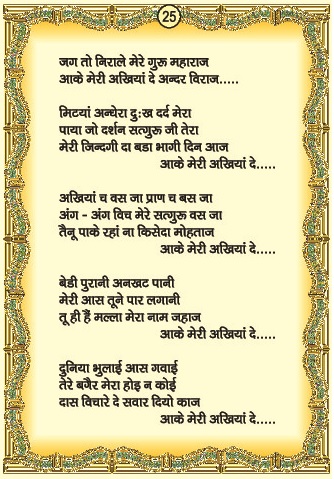 25
जग तो निराले मेरे गुरू महाराज
आके मेरी अखियां दे अन्दर विराज.....
मिटयां अन्धेरा दुःख दर्द मेरा
पाया जो दर्शन सत्गुरू जी तेरा
मेरी जिन्दगी दा बडा भागी दिन आज
आके मेरी अखियां दे.....
अखियां च वस जा प्राण च बस जा
अंग - अंग विच मेरे सत्गुरू वस जा
तैनू पाके रहां ना किसेदा मोहताज
आके मेरी अखियां दे.....
बेडी पुरानी अनखट पानी
मेरी आस तूने पार लगानी
तू ही हैं मल्ला मेरा नाम जहाज
आके मेरी अखियां दे.....
दुनिया भुलाई आस गवाई
तेरे बगैर मेरा होइ न कोई
दास विचारे दे सवार दियो काज
आके मेरी अखियां दे.....